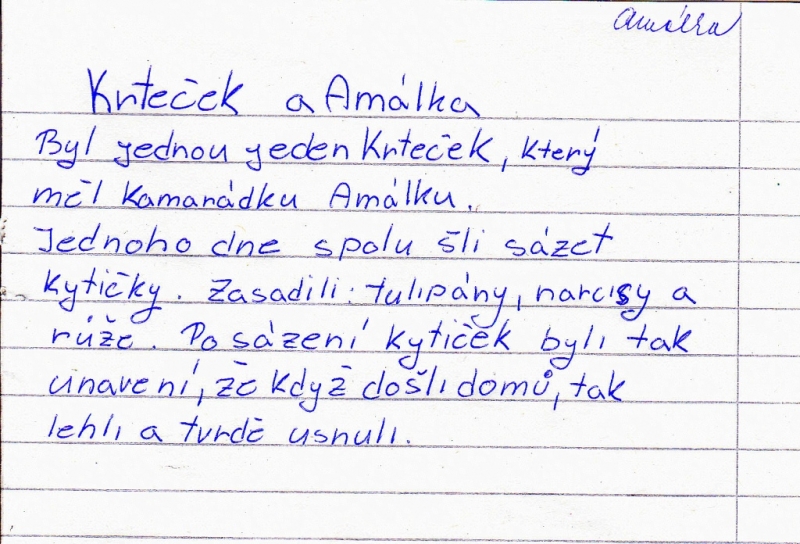 Amálka
Krteček a Amálka
Byl jednou jeden Krteček, který
měl kamarádku Amálku.
Jednoho dne spolu šli sázet
kytičky. Zasadili: tulipány, narcisy a
růže. Po sázení kytiček byli tak
unavení, že když došli domů, tak
lehli a tvrdě usnuli.